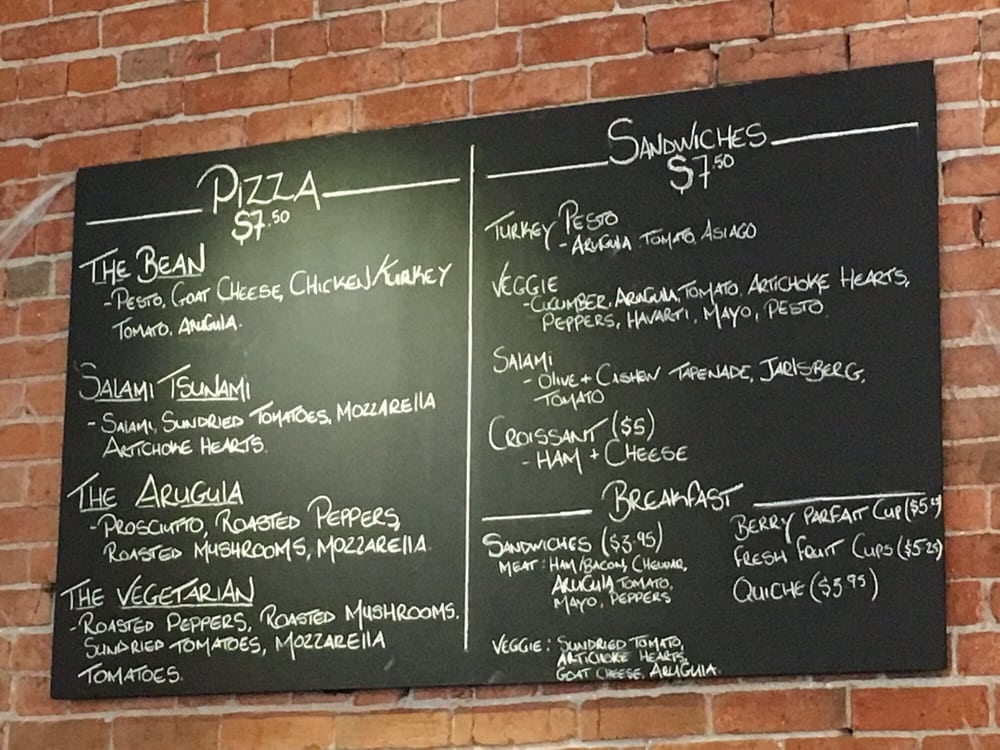 PIZZA
$7.50
THE BEAN
-PESTO, GOAT CHEESE, CHICKEN/TURKEY
TOMATO, ARUGULA.
SALAMI TSUNAMI
- SALAMI, SUNDRIED TOMATOES, MOZZARELLA
ARTICHOKE HEARTS.
THE ARUGULA
-PROSCIUTTO, ROASTED PEPPERS,
ROASTED MUSHROOMS, MOZZARELLA.
THE VEGETARIAN
-ROASTED PEPPERS, ROASTED MUSHROOMS.
SUNDRIED TOMATOES, MOZZARELLA
TOMATOES.
SANDWICHES
$7.50
TURKEY PESTO
-ARUGULA, TOMATO, ASIAGO
VEGGIE
-CUCUMBER, ARUGULA, TOMATO, ARTICHOKE HEARTS,
PEPPERS, HAVARTI, MAYO, PESTO.
SALAMI
- OLIVE + CASHEW TAPENADE, JARLSBERG,
TOMATO
CROISSANT ($5)
- HAM + CHEESE
BREAKFAST
SANDWICHES ($3.95)
MEAT: HAM/BACON, CHEDDAR,
ARUGULA, TOMATO,
MAYO, PEPPERS
VEGGIE: SUNDRIED TOMATO,
ARTICHOKE HEARTS,
GOAT CHEESE, ARUGULA.
BERRY PARFAIT CUP ($5.25)
FRESH FRUIT CUPS ($5.25)
QUICHE ($3.95)